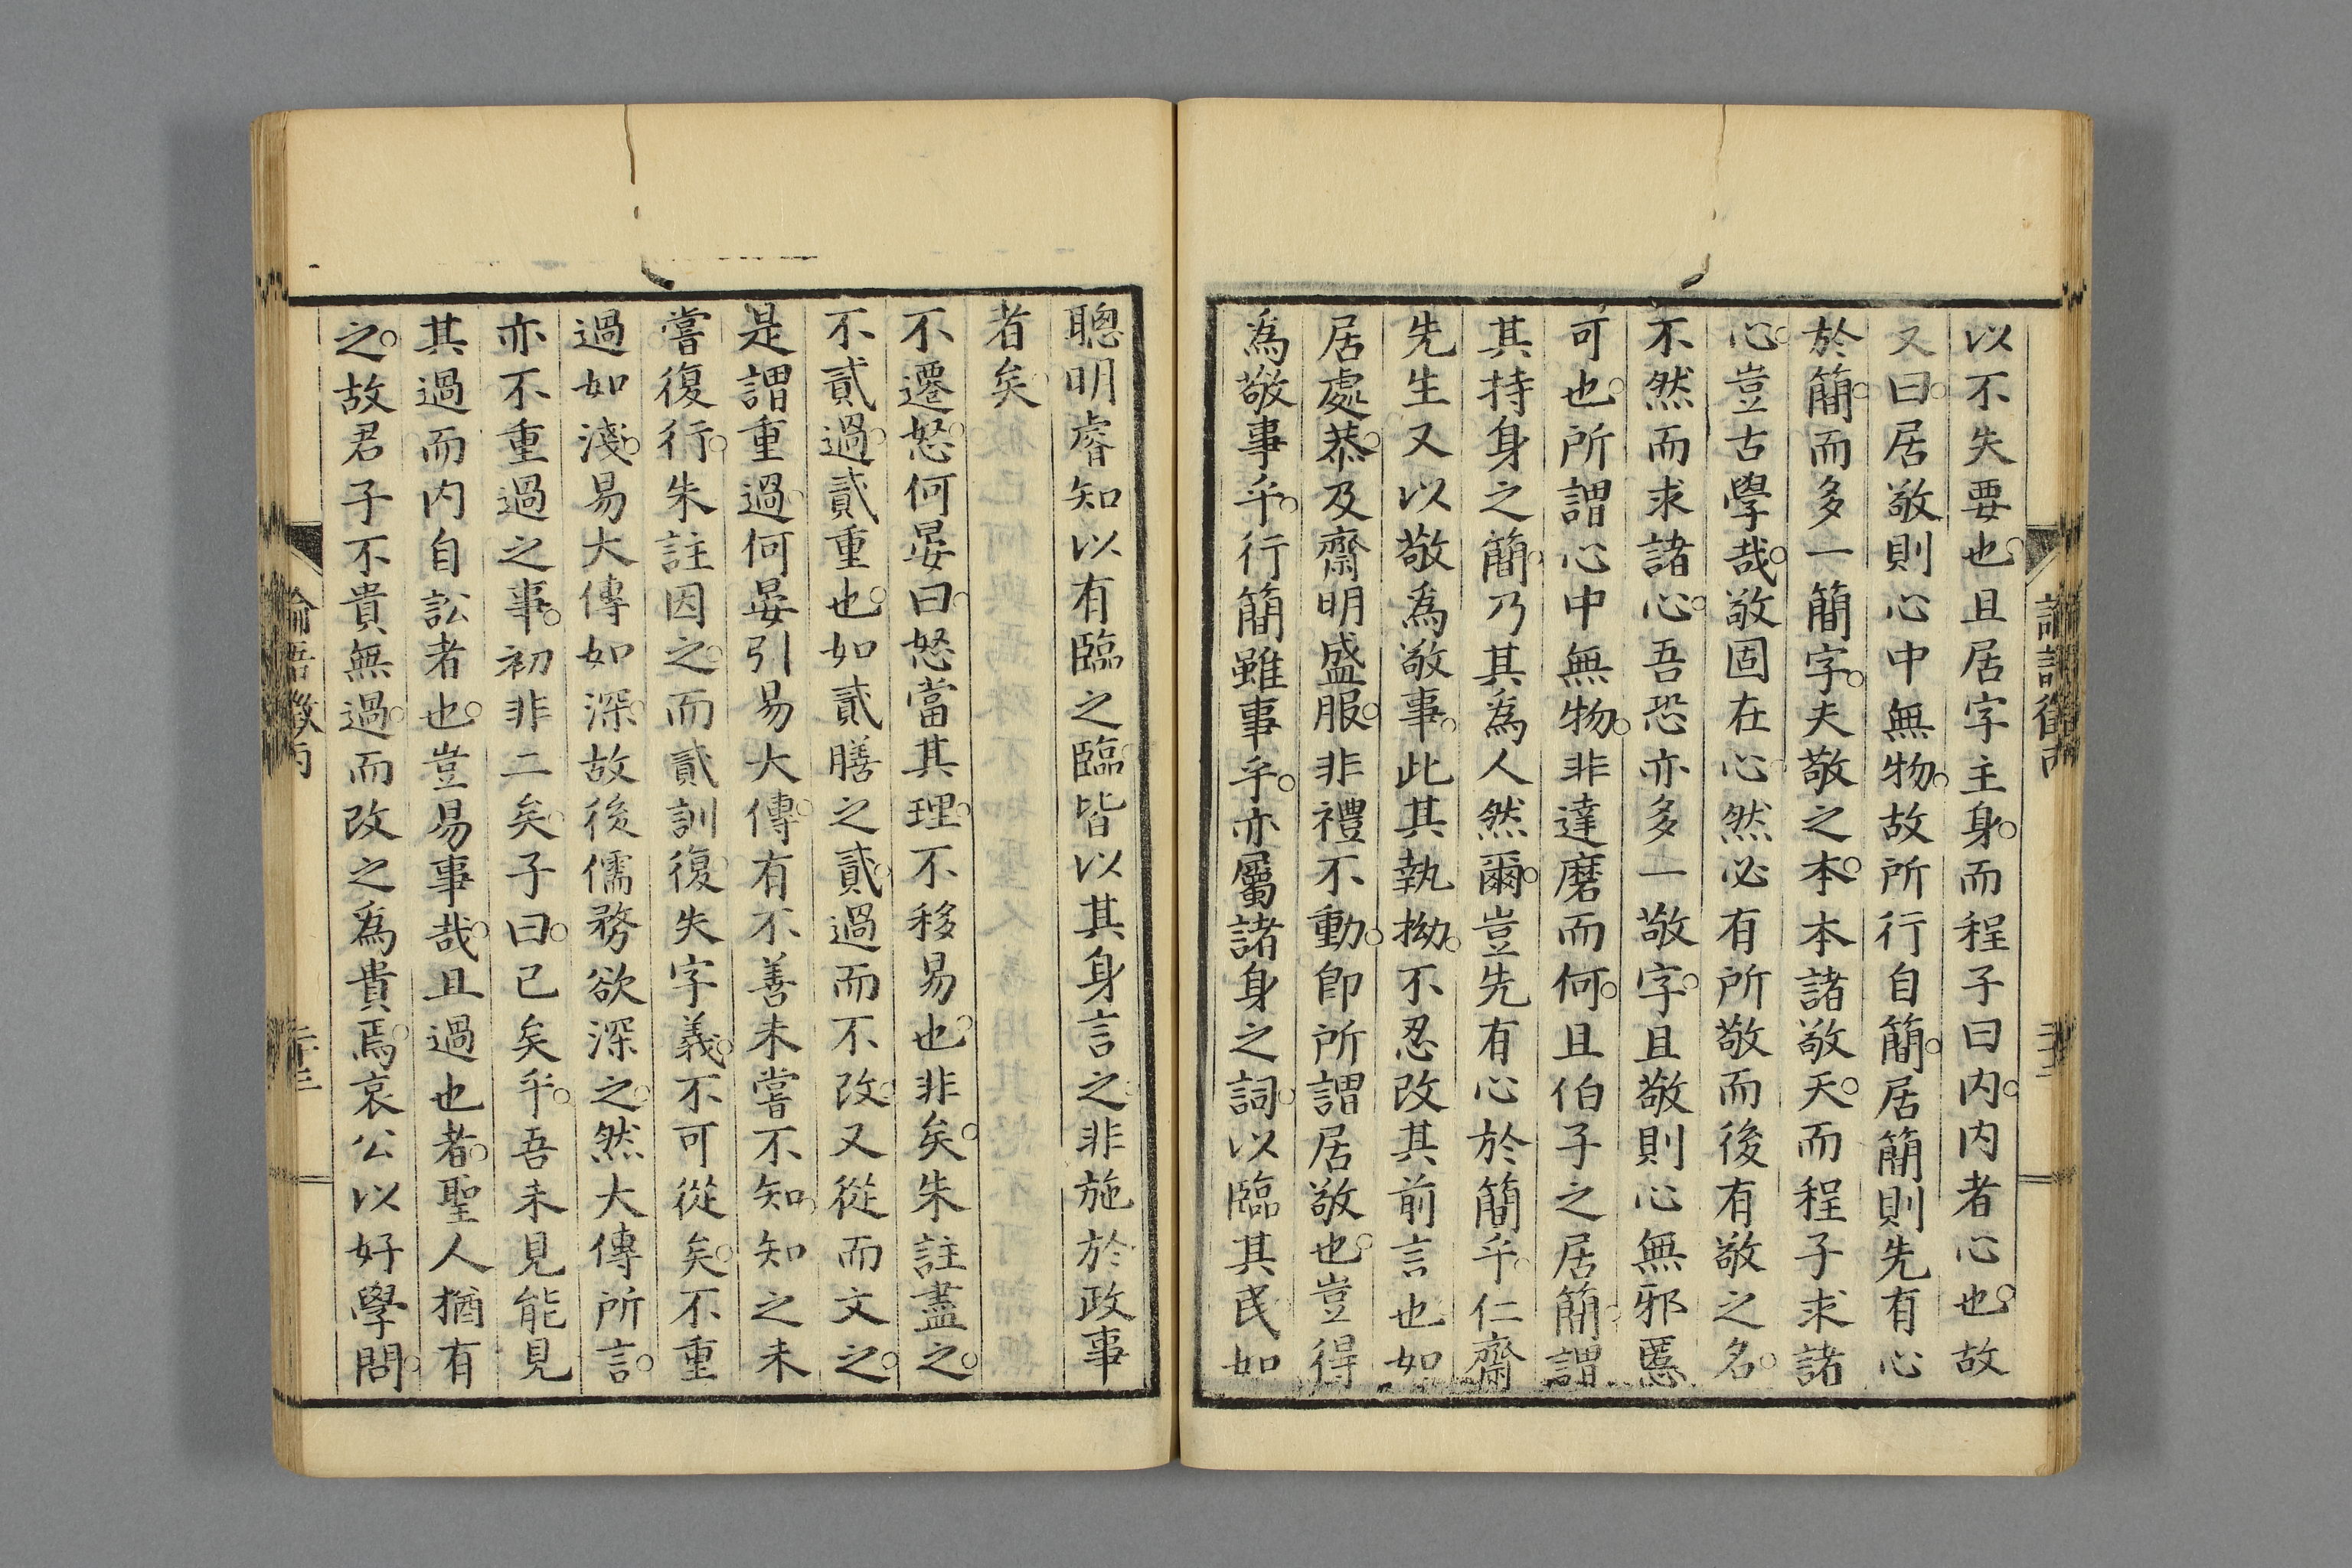 論語徵丙
以不失要也。且居字主身。而程子曰内。内者心也。故
又曰。居敬則心中無物。故所行自簡。居簡則先有心
於簡。而多一簡字。夫敬之本。本諸敬天。而程子求諸
心。豈古學哉。敬固在心。然必有所敬而後有敬之名。
不然而求諸心。吾恐亦多一敬字。且敬則心無邪慝
可也。所謂心中無物。非達磨而何。且伯子之居簡。謂
其持身之簡。乃其爲人然爾。豈先有心於簡乎。仁齋
先生又以敬爲敬事。此其執拗。不忍改其前言也。如
居處恭。及齋明盛服。非禮不動。卽所謂居敬也。豈得
爲敬事乎。行簡雖事乎。亦屬諸身之詞。以臨其民如
聰明睿知以有臨之臨。皆以其身言之。非施於政事
者矣。
不遷怒。何晏曰。怒當其理。不移易也。非矣。朱註盡之。
不貳過。貳重也。如貳膳之貳。過而不改。又從而文之。
是謂重過。何晏引易大傳。有不善未嘗不知。知之未
嘗復行。朱註因之。而貳訓復。失字義。不可從矣。不重
過如淺。易大傳如深。故後儒務欲深之。然大傳所言。
亦不重過之事。初非二矣。子曰。已矣乎。吾未見能見
其過而内自訟者也。豈易事哉。且過也者。聖人猶有
之。故君子不貴無過。而改之爲貴焉。哀公以好學問。
論語徵丙